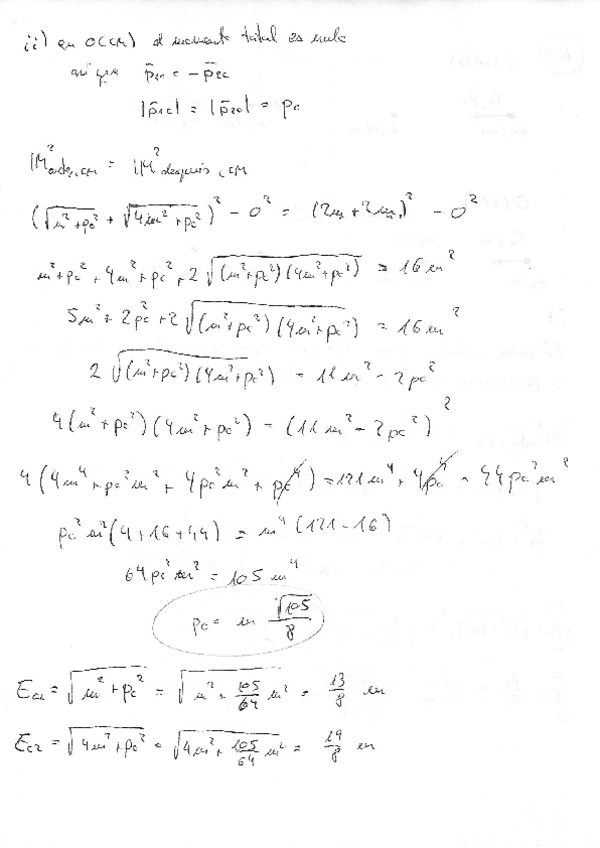 ii) en O(CM) el momento total es nulo
así que p̄₁c = -p̄₂c
|p̄₁c| = |p̄₂c| = pc
IM²antes,CM = IM²después,CM
(√(m²+pc²) + √(4m²+pc²))² - 0² = (2m+2m)² - 0²
m²+pc² + 4m²+pc² + 2√((m²+pc²)(4m²+pc²)) = 16m²
5m² + 2pc² + 2√((m²+pc²)(4m²+pc²)) = 16m²
2√((m²+pc²)(4m²+pc²)) = 11m² - 2pc²
4(m²+pc²)(4m²+pc²) = (11m² - 2pc²)²
4(4m⁴ + pc²m² + 4pc²m² + pc⁴) = 121m⁴ + 4pc⁴ - 44pc²m²
pc²m²(4+16+44) = m⁴(121-16)
64pc²m² = 105m⁴
pc = m √105/8
Ec1 = √(m²+pc²) = √(m² + 105/64 m²) = 13/8 m
Ec2 = √(4m²+pc²) = √(4m² + 105/64 m²) = 19/8 m